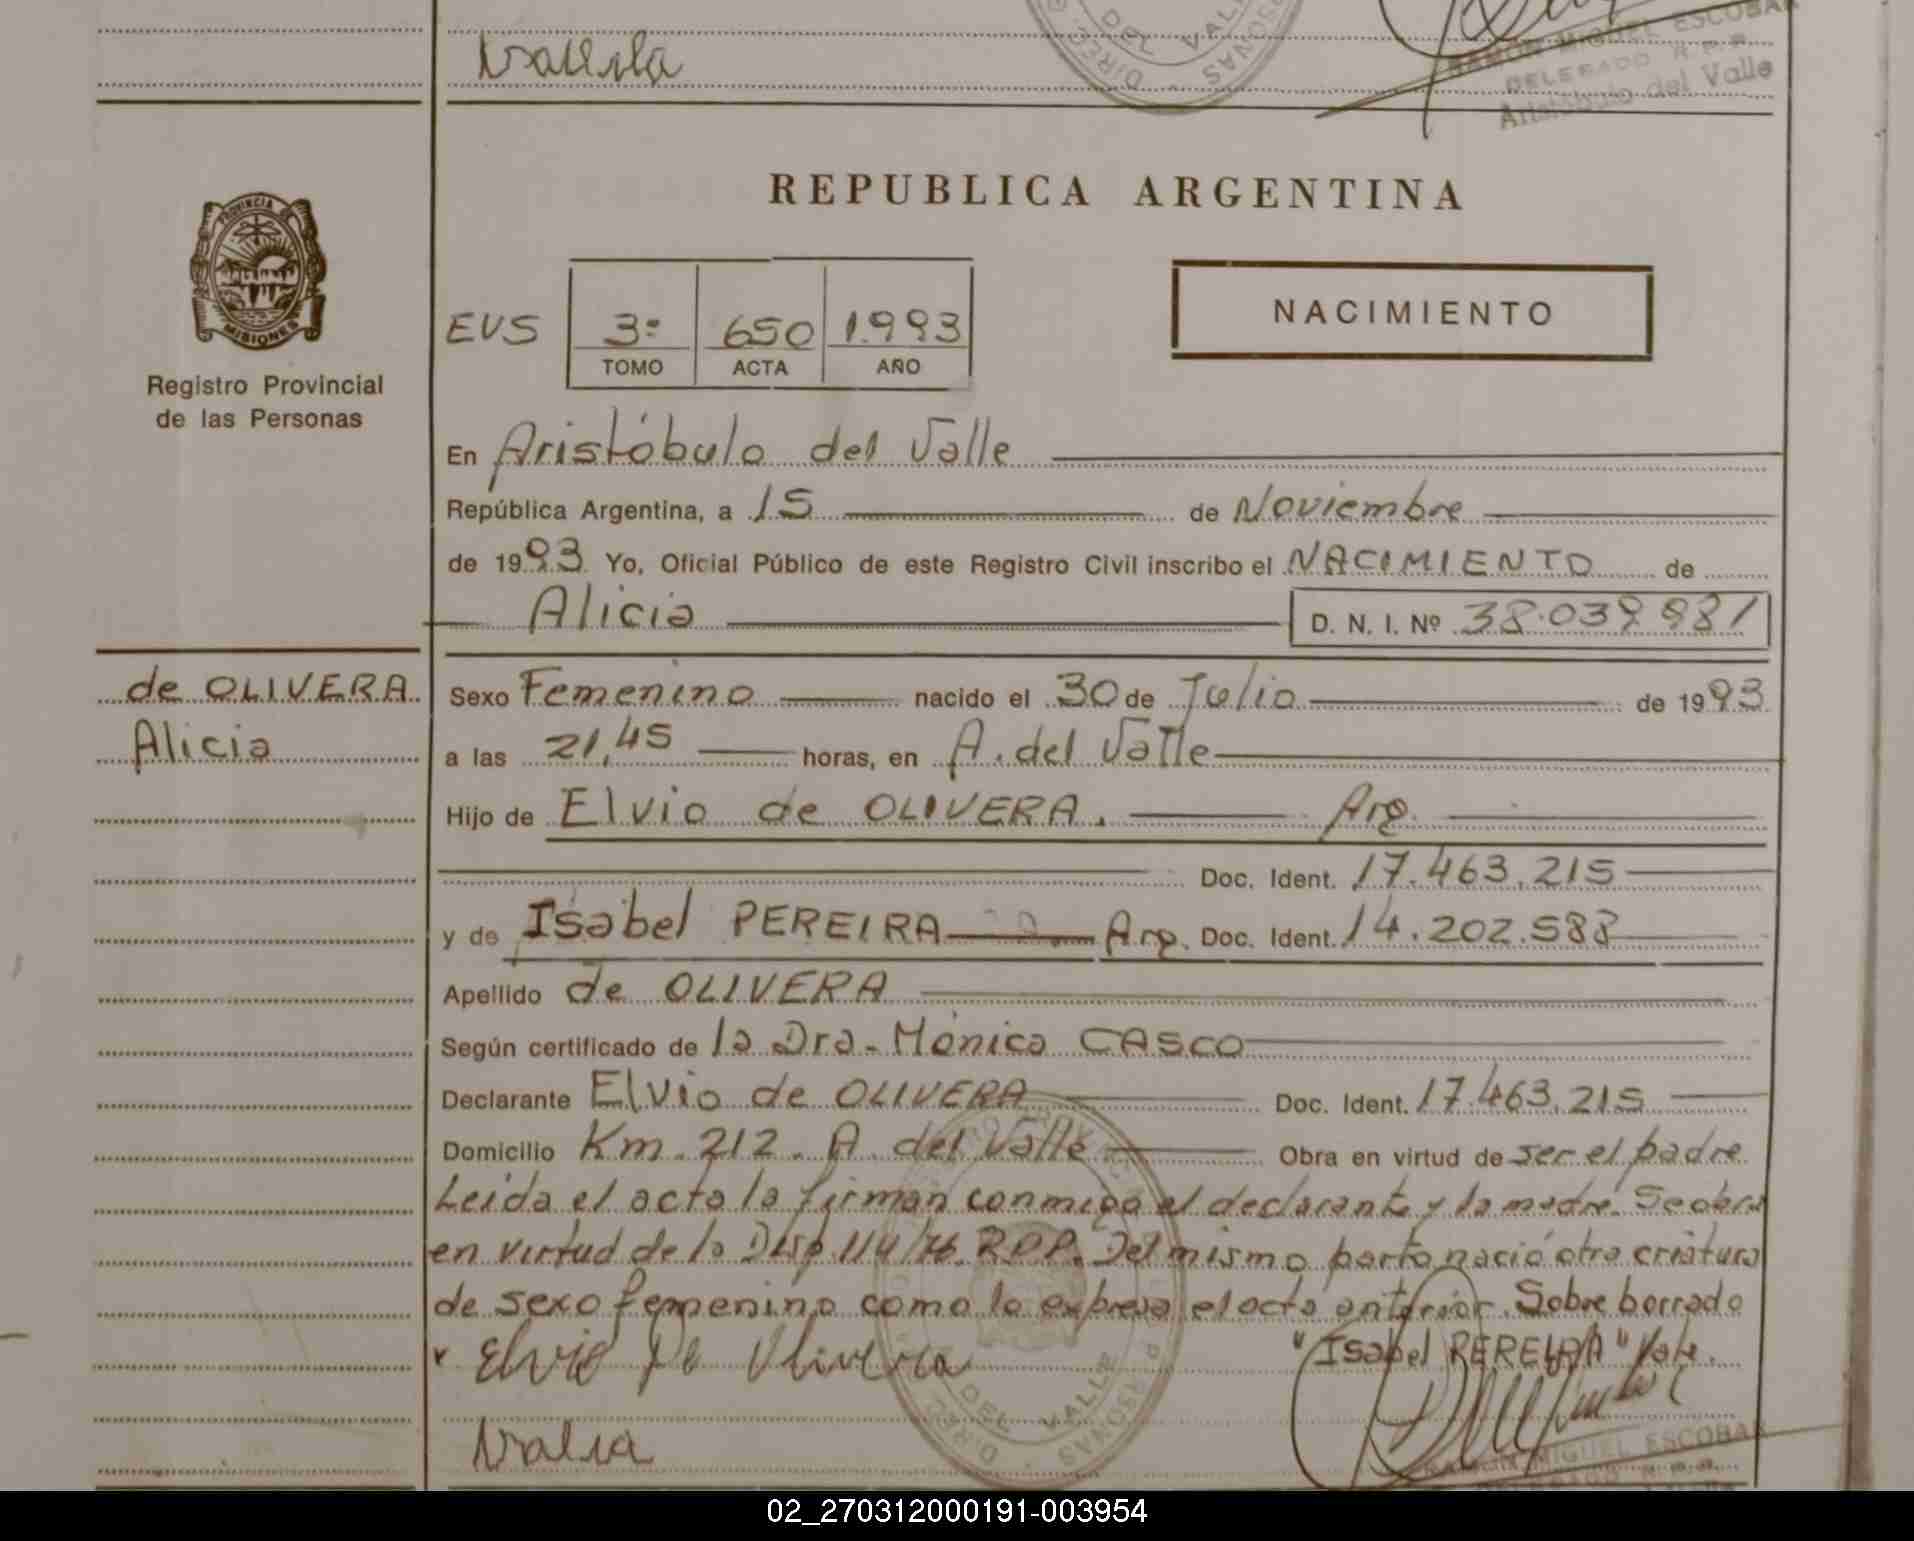 DEL VALLE
DIREC. PERSONAS
RAMON MIGUEL ESCOBAR
DELEGADO R.P.P.
Aristóbulo del Valle
PROVINCIA DE
MISIONES
Registro Provincial
de las Personas
REPUBLICA ARGENTINA
EVS 3º 650 1993
TOMO ACTA AÑO
NACIMIENTO
En Aristóbulo del Valle
República Argentina, a 15 de Noviembre
de 1993 Yo, Oficial Público de este Registro Civil inscribo el NACIMIENTO de
Alicia D. N. I. Nº 38.039.981
de OLIVERA
Alicia
Sexo Femenino nacido el 30 de Julio de 1993
a las 21,45 horas, en A. del Valle
Hijo de Elvio de OLIVERA. Arg.
Doc. Ident. 17.463.215
y de Isabel PEREIRA Arg. Doc. Ident. 14.202.588
Apellido de OLIVERA
Según certificado de la Dra. Mónica CASCO
Declarante Elvio de OLIVERA Doc. Ident. 17.463.215
Domicilio Km. 212. A. del Valle Obra en virtud de ser el padre
Leída el acta la firman conmigo el declarante y la madre. Se obra
en virtud de la Disp. 114/76. R.P.P. Del mismo parto nació otra criatura
de sexo femenino como lo expresa el acta anterior. Sobre borrado
"Isabel PEREIRA" Vale.
Elvio De Olivera
DEL VALLE
DIREC. PERSONAS
RAMON MIGUEL ESCOBAR
DELEGADO R.P.P.
02_270312000191-003954